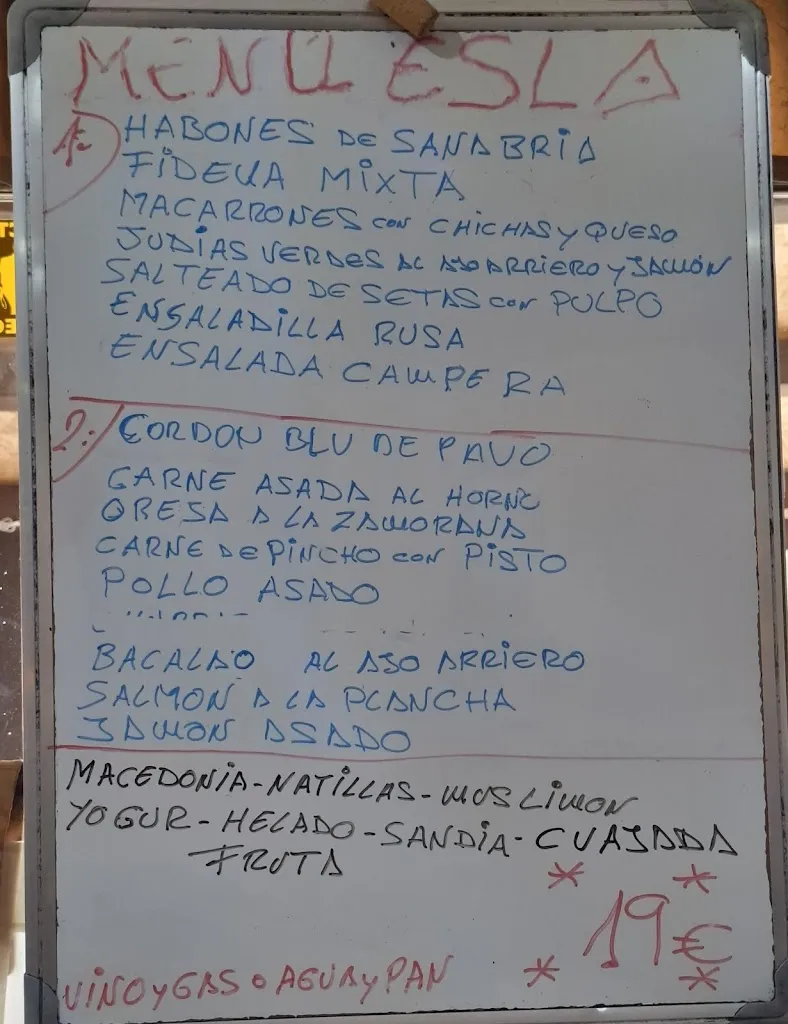 MENU ESLA
1º HABONES DE SANABRIA
FIDEUA MIXTA
MACARRONES CON CHICHAS Y QUESO
JUDIAS VERDES AL AJO ARRIERO Y JAMÓN
SALTEADO DE SETAS CON PULPO
ENSALADILLA RUSA
ENSALADA CAMPERA
2: CORDON BLU DE PAVO
CARNE ASADA AL HORNO
PRESA A LA ZAMORANA
CARNE DE PINCHO CON PISTO
POLLO ASADO
BACALAO AL AJO ARRIERO
SALMON A LA PLANCHA
JAMON ASADO
MACEDONIA-NATILLAS-MUS LIMON
YOGUR-HELADO-SANDIA-CUAJADA
FRUTA
* *
19€
VINO Y GAS O AGUA Y PAN * *